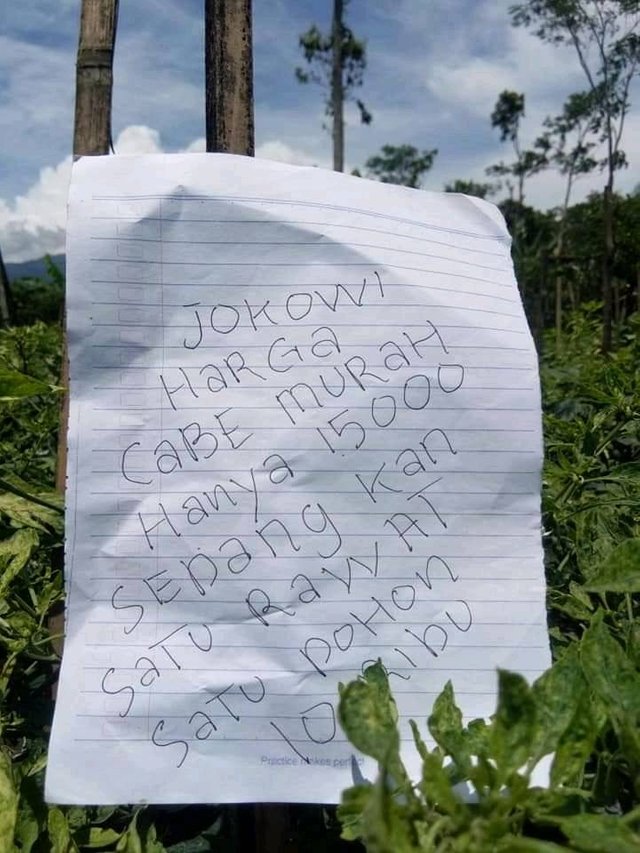 JOKOWI
HaRGa
CaBE MURaH
Hanya 15000
SEDang Kan
SaTU RaWAT
SaTU POHON
10 Ribu
Practice makes perfect